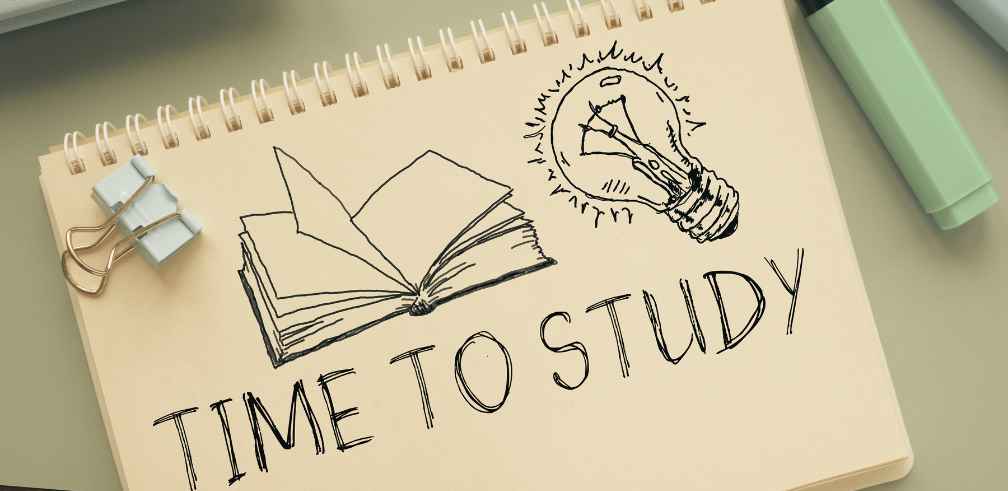 TIME TO STUDY